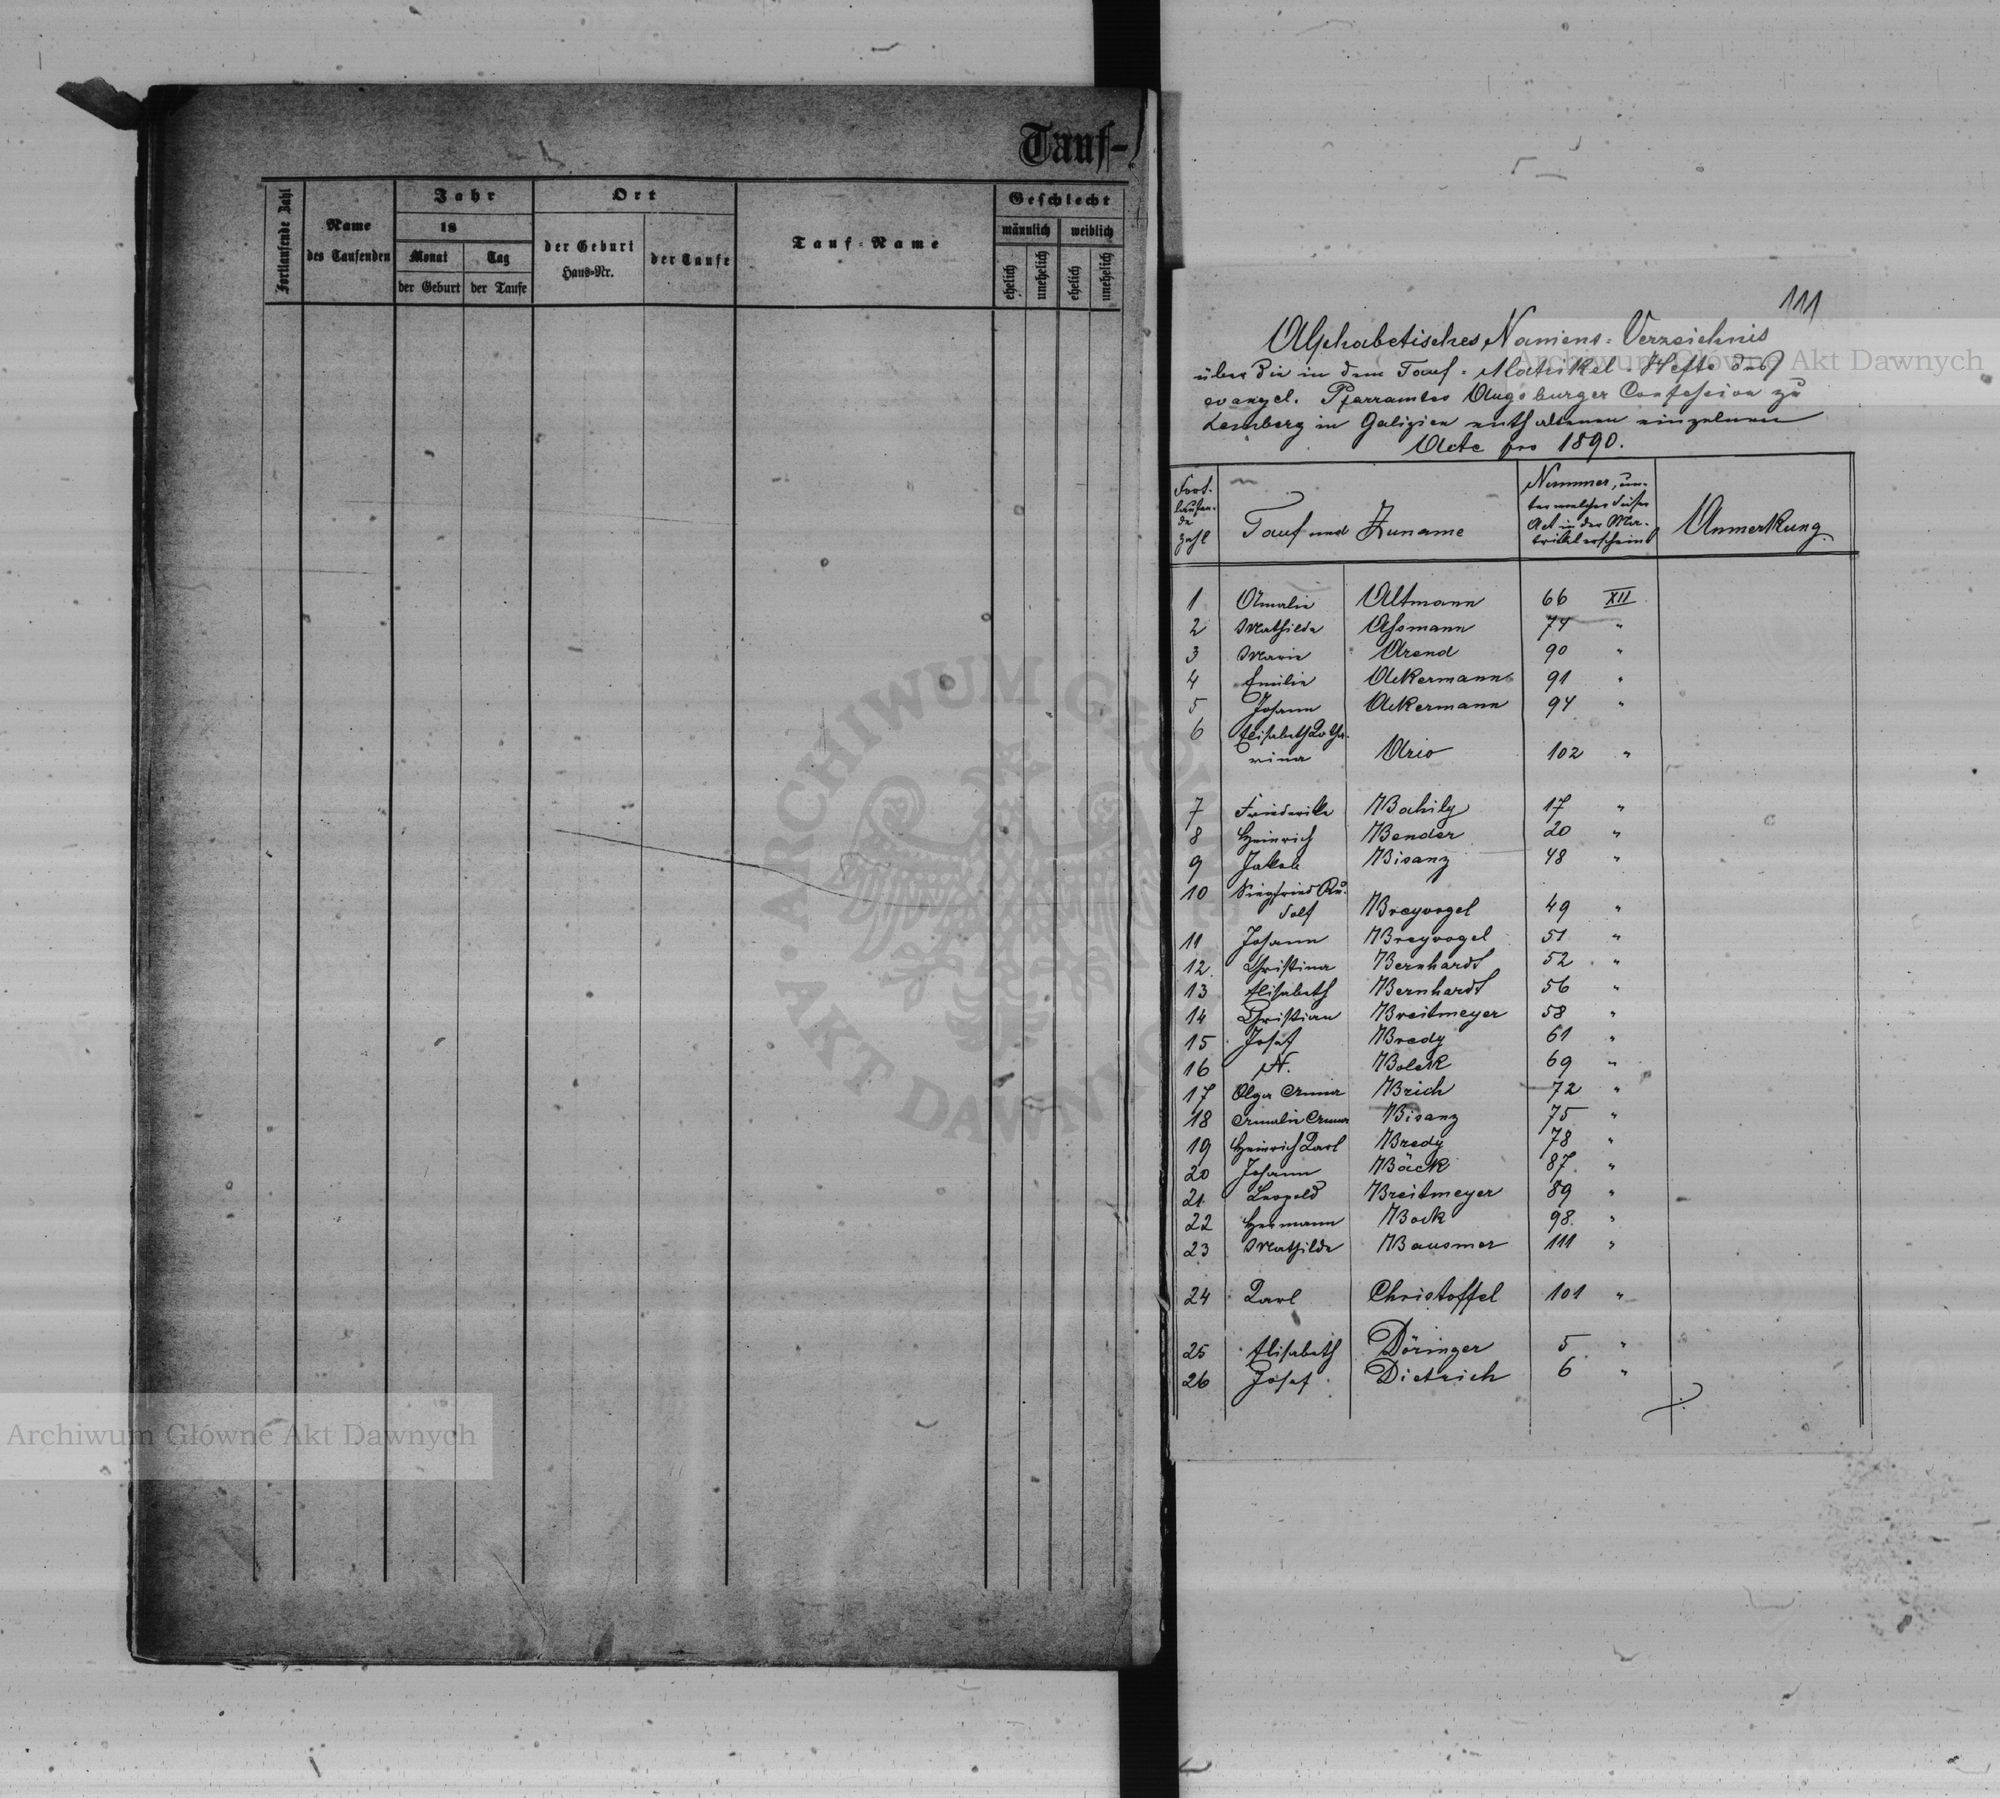 Tauf-
Fortlaufende Zahl
Name
des Taufenden
Jahr
18
Monat
Tag
der Geburt
der Taufe
Ort
der Geburt
Haus-Nr.
der Taufe
Tauf-Name
Geschlecht
männlich
weiblich
ehelich
unehelich
ehelich
unehelich
111
Alphabetisches Namens-Verzeichnis
über die in dem Tauf-Matrikel-Hefte des
evangel. Pfarramtes Augsburger Confession zu
Lemberg in Galizien enthaltenen einzelnen
Acte pro 1890.
Fort-
laufen-
de
Zahl
Tauf und Zuname
Nummer, un-
ter welcher dieser
Act in der Ma-
trikel erscheint
Anmerkung
1 Amalie Altmann 66 XII
2 Mathilde Assmann 74 "
3 Marie Arend 90 "
4 Emilie Ackermann 91 "
5 Johann Ackermann 94 "
6 Elisabeth Katha-
rina Ario 102 "
7 Friederike 17 "
8 Heinrich Bender 20 "
9 Jakob Bisanz 48 "
10 Siegfried Ru-
dolf Breyvogel 49 "
11 Johann Breyvogel 51 "
12 Christina Bernhardt 52 "
13 Elisabeth Bernhardt 56 "
14 Christian Breitmeyer 58 "
15 Josef Bredy 61 "
16 N. Bolek 69 "
17 Olga Anna Brich 72 "
18 Amalie Anna Bisanz 75 "
19 Heinrich Karl Bredy 78 "
20 Johann Bäck 87. "
21. Leopold Breitmeyer 89 "
22 Hermann Bock 98. "
23 Mathilde Bausmer 111 "
24 Karl Christoffel 101 "
25 Elisabeth Döringer 5 "
26 Josef Dietrich 6 "
Archiwum Główne Akt Dawnych
ARCHIWUM GŁÓWNE
AKT DAWNYCH
Archiwum Główne Akt Dawnych